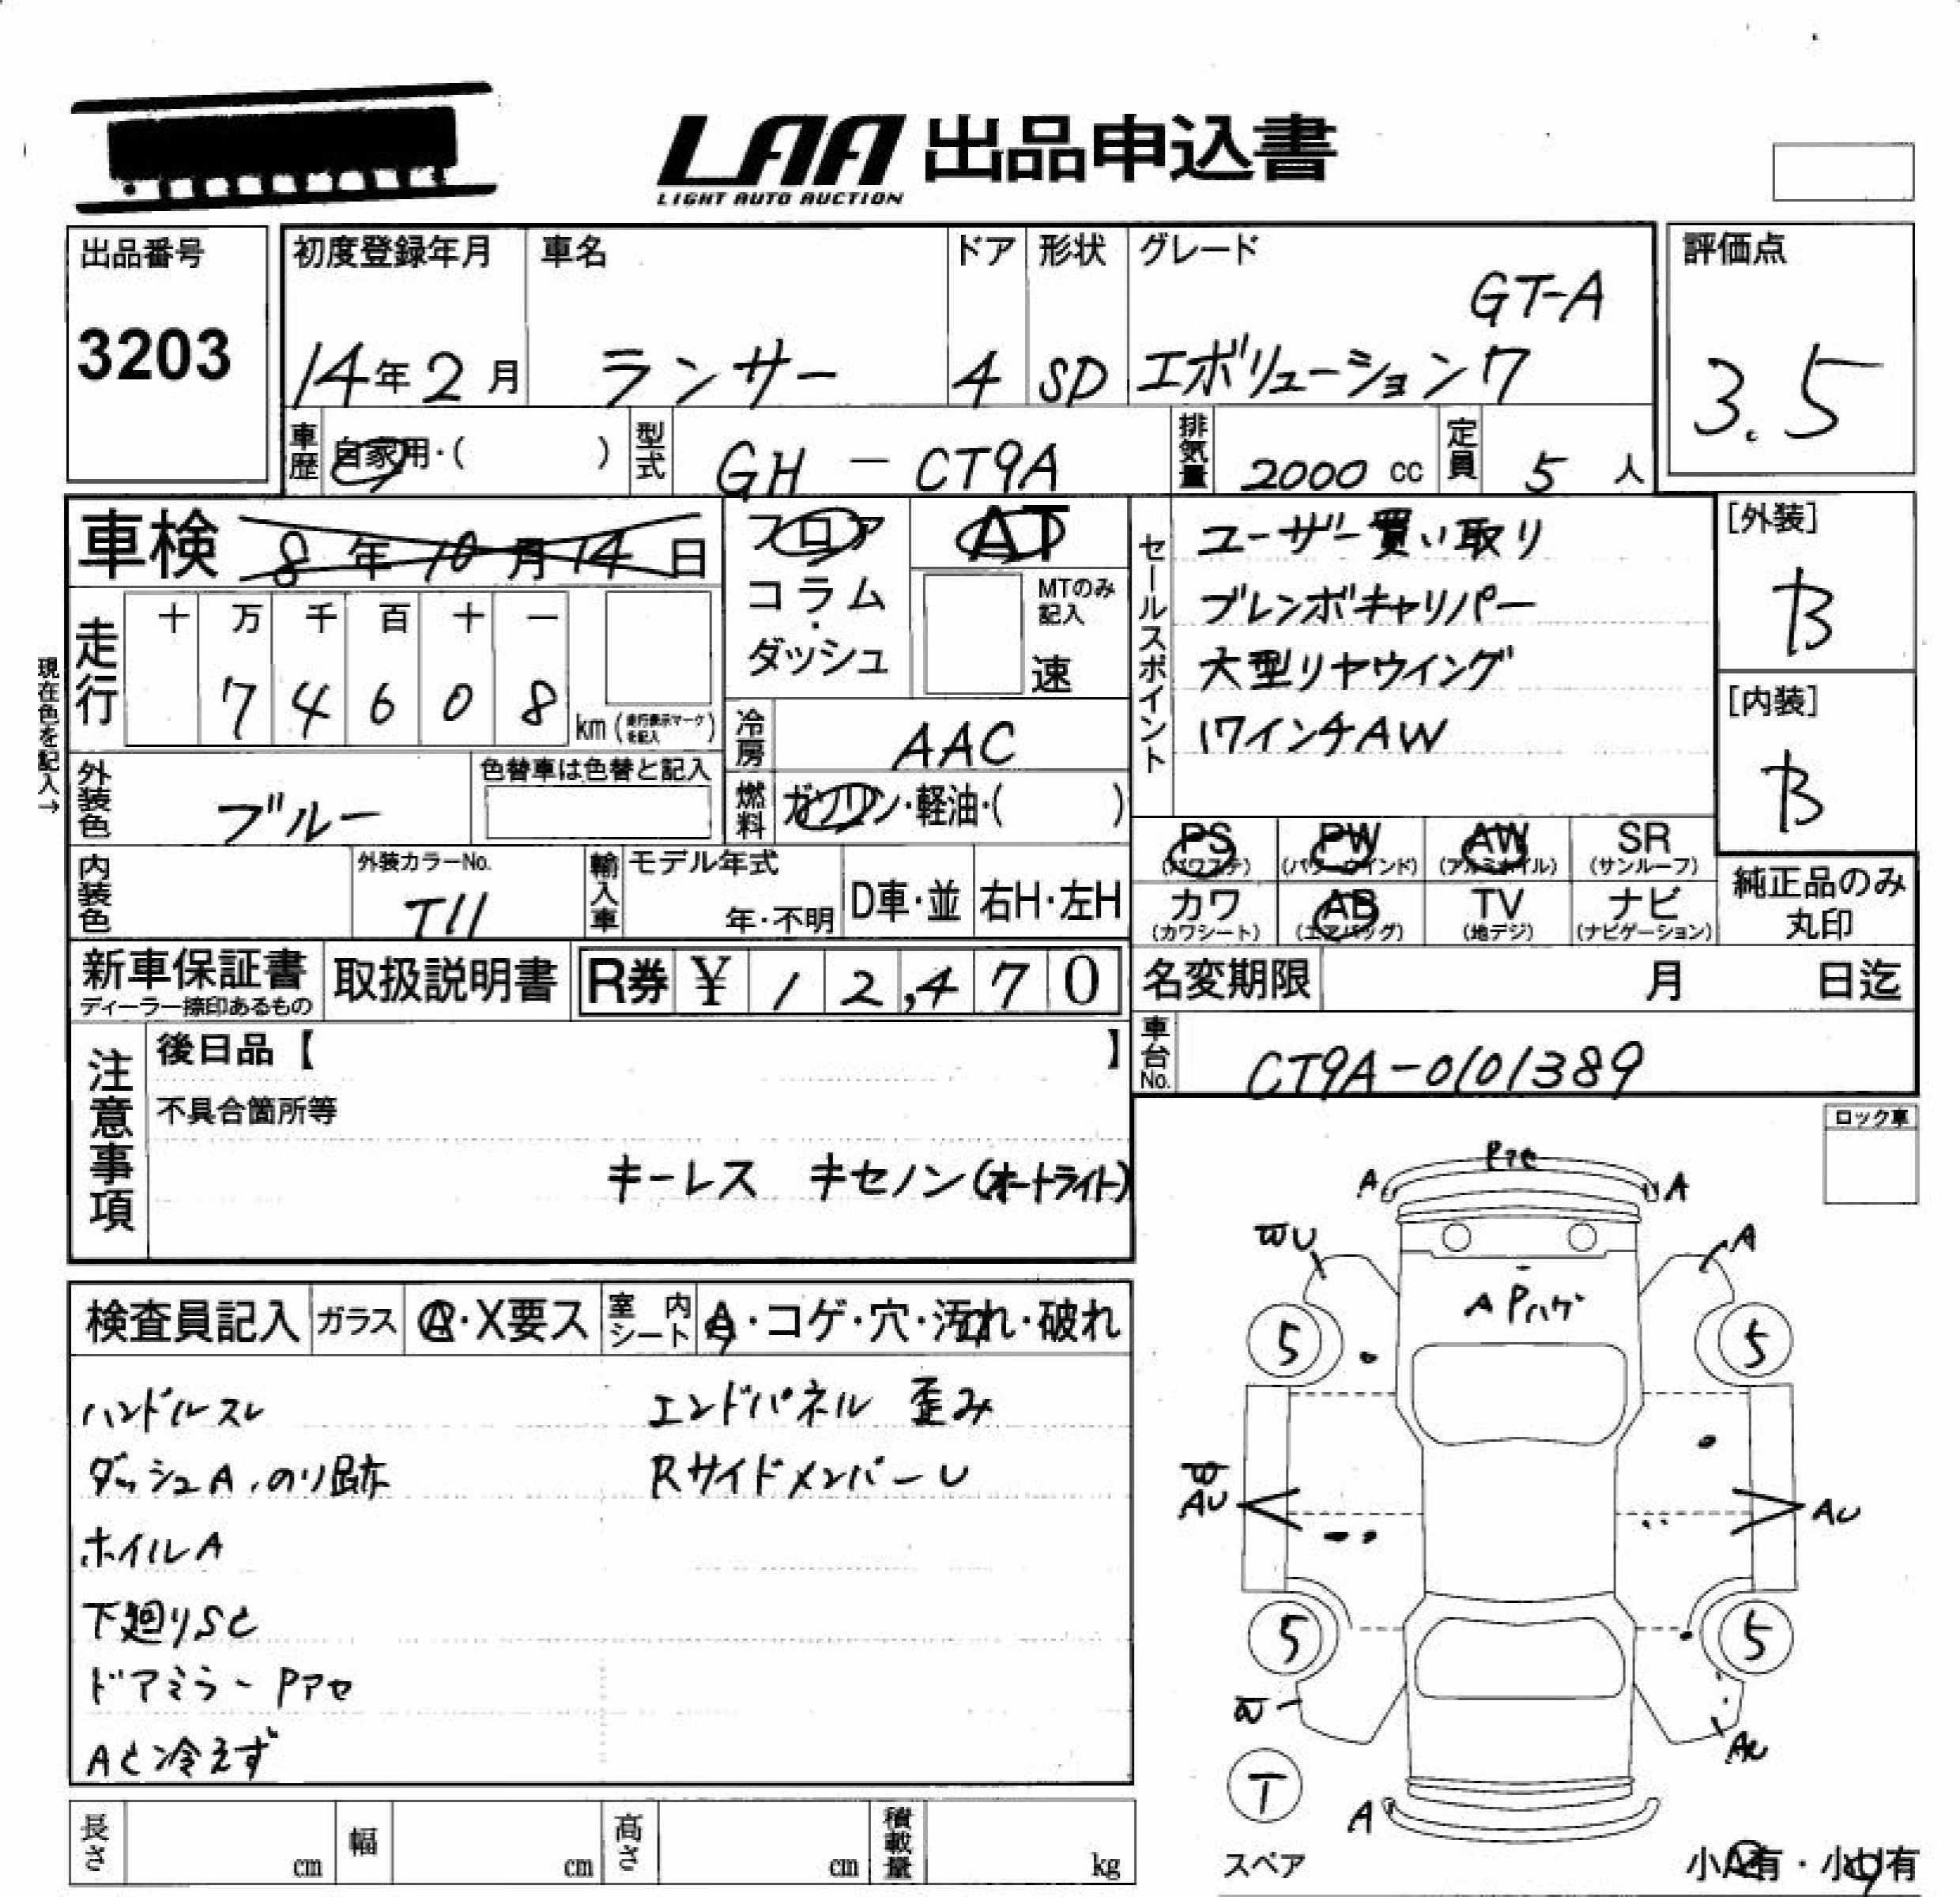 LAA 出品申込書
LIGHT AUTO AUCTION
出品番号
3203
初度登録年月
14年2月
車名
ランサー
ドア
4
形状
SD
グレード
GT-A
エボリューション7
評価点
3.5
車歴
自家用・( )
型式
GH - CT9A
排気量
2000 cc
定員
5 人
車検 8年10月14日
フロア
コラム・
ダッシュ
AT
MTのみ記入
速
セールスポイント
ユーザー買い取り
ブレンボキャリパー
大型リヤウイング
17インチAW
[外装]
B
[内装]
B
現在色を記入→
走行
十 万 千 百 十 一
7 4 6 0 8
km(走行表示マークを記入)
冷房
AAC
外装色
ブルー
色替車は色替と記入
燃料
ガソリン・軽油・( )
PS (パワステ)
PW (パワーウインド)
AW (アルミホイル)
SR (サンルーフ)
カワ (カワシート)
AB (エアバッグ)
TV (地デジ)
ナビ (ナビゲーション)
純正品のみ
丸印
内装色
外装カラーNo.
T11
輸入車
モデル年式
年・不明
D車・並
右H・左H
新車保証書
ディーラー捺印あるもの
取扱説明書
R券 ¥ 12,470
名変期限 月 日迄
車台No.
CT9A-0101389
注意事項
後日品【 】
不具合箇所等
キーレス キセノン(オートライト)
ロック車
検査員記入
ガラス
A・X要ス
室内シート
A・コゲ・穴・汚れ・破れ
ハンドルスレ
エンドパネル 歪み
ダッシュA,のり跡
RサイドメンバーU
ホイルA
下廻りSC
ドアミラーPアセ
AC冷えず
Pアセ
A
A
U
A
A Pハゲ
5
5
AU
AU
5
5
T
A
スペア
小A有・小U有
長さ cm
幅 cm
高さ cm
積載量 kg